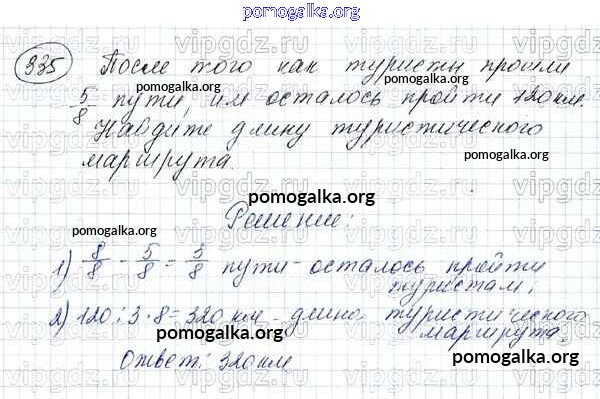 pomogalka.org
335 После того как туристы прошли
pomogalka.org
5/8 пути, им осталось пройти 120 км.
Найдите длину туристического
маршрута.
pomogalka.org
pomogalka.org
Решение:
pomogalka.org
1) 8/8 - 5/8 = 3/8 пути - осталось пройти
туристам;
pomogalka.org
2) 120 : 3 · 8 = 320 км - длина туристического
маршрута.
pomogalka.org
pomogalka.org
Ответ: 320 км